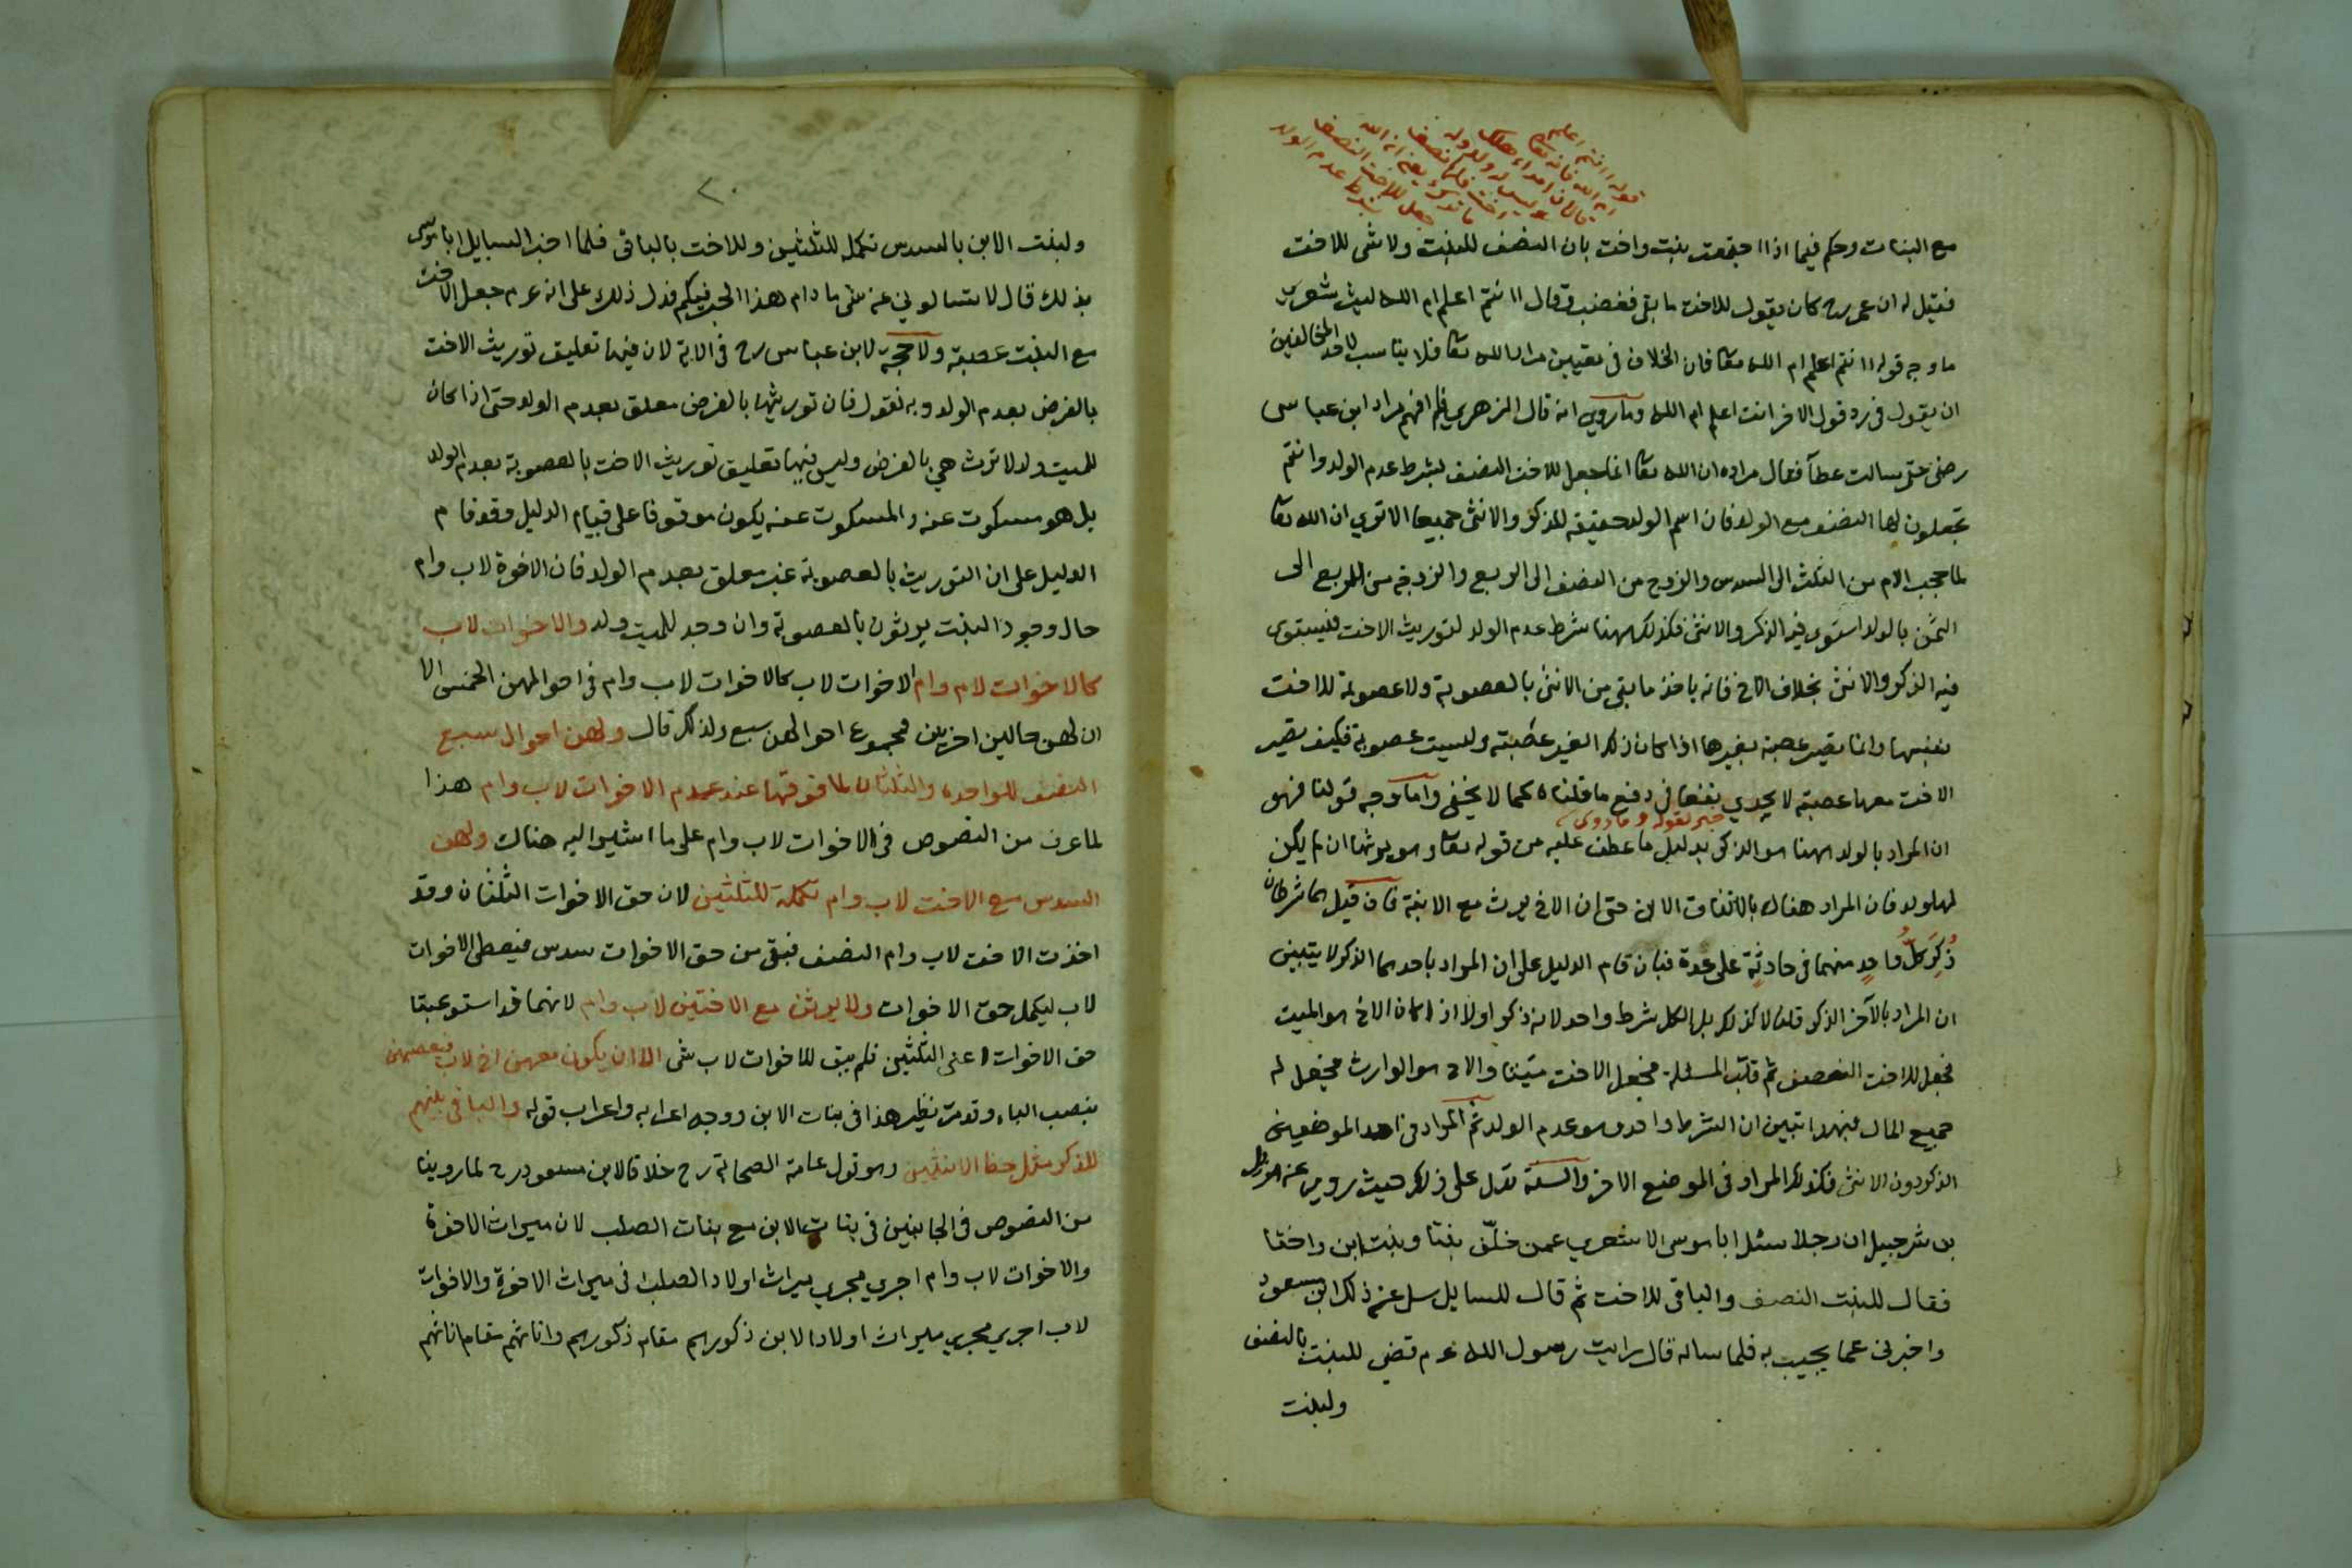 مع البنات وحكم فيما اذا اجتمعت بنت واخت بان النصف للبنت ولا شى للاخت
فقيل له ان عمر رض كان يقول للاخت ما بقى فغضب وقال اانتم اعلم ام الله ليت شعرى
ما وجه قوله اانتم اعلم ام الله تعا فان الخلاف فى تعيين مراد الله تعا فلا يناسب لاحد المخالفين
ان يقول فى رد قول الاخر انت اعلم ام الله وما روي انه قال الزهري فلم افهم مراد ابن عباس
رضى حتى سالت عطآ فقال مراده ان الله تعا انما جعل للاخت النصف بشرط عدم الولد وانتم
تجعلون لها النصف مع الولد فان اسم الولد حقيقة للذكر والانثى جميعا الا تري ان الله تعا
لما حجب الام من الثلث الى السدس والزوج من النصف الى الربع والزوجة من الربع الى
الثمن بالولد استوى فيه الذكر والانثى فكذلك ههنا شرط عدم الولد لتوريث الاخت فيستوى
فيه الذكر والانثى بخلاف الاخ فانه ياخذ ما بقى من الانثى بالعصوبة ولا عصوبة للاخت
بنفسها وانما تصير عصبة بغيرها اذا كان ذلك الغير عصبة وليست عصوبة فكيف تصير
الاخت معها عصبة لا يجدي نفعا فى دفع ما قلناه كما لا يخفى واما وجه قولنا فهو
خبر لقوله وما روى
ان المراد بالولد ههنا هو الذكر بدليل ما عطف عليه من قوله تعا وهو يرثها ان لم يكن
لها ولد فان المراد هناك بالاتفاق الابن حتى ان الاخ يرث مع الابنة فان قيل هما شرطان
ذُكِرَ كلُّ واحدٍ منهما فى حادثةٍ على حدة فبان قام الدليل على ان المراد باحدهما الذكر لا يتبين
ان المراد بالآخر الذكر قلنا لا كذلك بل الكل شرط واحد لانه ذكر اولا اذا كان الاخ هو الميت
فجعل للاخت النصف ثم قلب المسئلة فجعل الاخت ميتا والاخ هو الوارث فجعل له
جميع المال فبهذا تبين ان الشرط واحد وهو عدم الولد ثم المراد فى احد الموضعين
الذكر دون الانثى فكذلك المراد فى الموضع الاخر والسنة تدل على ذلك حيث روي عنه هزيل
بن شرحبيل ان رجلا سئل ابا موسى الاشعري عمن خلّف بنتا وبنت ابن واختا
فقال للبنت النصف والباقى للاخت ثم قال للسايل سل عن ذلك ابن مسعود
واخبرنى عما يجيب به فلما ساله قال رايت رسول الله عم قضى للبنت بالنصف
ولبنت
٢٠
ولبنت الابن بالسدس تكملة للثلثين وللاخت بالباقى فلما اخبر السايل ابا موسى
بذلك قال لا تسالوني عن شى ما دام هذا الحبر فيكم فدل ذلك على انه عم جعل الاخت
مع البنت عصبة ولا حجة لابن عباس رض فى الاية لان فيها تعليق توريث الاخت
بالفرض بعدم الولد وبه نقول فان توريثها بالفرض معلق بعدم الولد حتى اذا كان
للميت ولد لا ترث هي بالفرض وليس فيها تعليق توريث الاخت بالعصوبة بعدم الولد
بل هو مسكوت عنه والمسكوت عنه يكون موقوفا على قيام الدليل وقد قام
الدليل على ان التوريث بالعصوبة غير معلق بعدم الولد فان الاخوة لاب وام
حال وجود البنت يرثون بالعصوبة وان وجد للميت ولد والاخوات لاب
كالاخوات لام وام الاخوات لاب كالاخوات لاب وام فى احوالهن الخمس الا
ان لهن حالين اخريين فمجموع احوالهن سبع ولذلك قال ولهن احوال سبع
النصف للواحدة والثلثان لما فوقها عند عدم الاخوات لاب وام هذا
لما عرف من النصوص فى الاخوات لاب وام على ما اشير اليه هناك ولهن
السدس مع الاخت لاب وام تكملة للثلثين لان حق الاخوات الثلثان وقد
اخذت الاخت لاب وام النصف فبقى من حق الاخوات سدس فيعطى الاخوات
لاب ليكمل حق الاخوات ولا يرثن مع الاختين لاب وام لانهما قد استوعبتا
حق الاخوات اعنى الثلثين فلم يبق للاخوات لاب شى الا ان يكون معهن اخ لاب فيعصبهن
بنصب الباء وقد مر نظير هذا فى بنات الابن ووجه اعرابه واعراب قوله والباقى بينهم
للذكر مثل حظ الانثيين وهو قول عامة الصحابة رض خلافا لابن مسعود رض لما روينا
من النصوص فى الجانبين فى بنات الابن مع بنات الصلب لان ميراث الاخوة
والاخوات لاب وام اجري مجرى ميراث اولاد الصلب فى ميراث الاخوة والاخوات
لاب اجري مجرى ميراث اولاد الابن ذكورهم مقام ذكورهم واناثهم مقام اناثهم